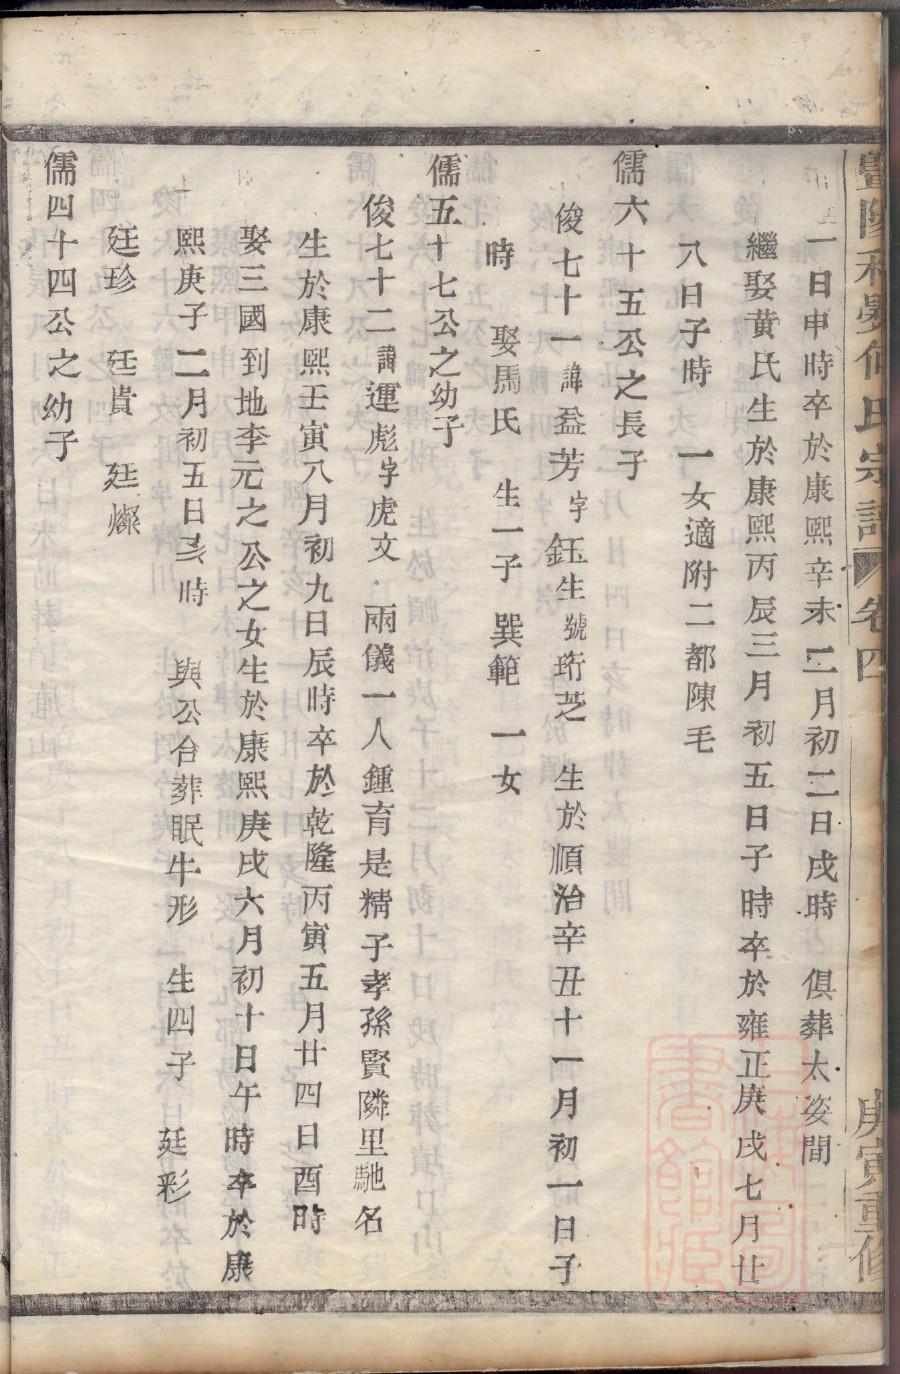 何氏宗譜 卷四 庚寅重修
一日申時卒於康熙辛未二月初二日戌時 俱葬太姿間
繼娶黄氏生於康熙丙辰三月初五日子時卒於雍正庚戌七月廿
八日子時 一女適附二都陳毛
儒六十五公之長子
俊七十一諱益芳字鈺生號珩芝 生於順治辛丑十一月初一日子
時 娶馬氏 生一子 巽範 一女
儒五十七公之幼子
俊七十二諱運彪字虎文 兩儀一人鍾育是精子孝孫賢隣里馳名
生於康熙壬寅八月初九日辰時卒於乾隆丙寅五月廿四日酉時
娶三國到地李元之公之女生於康熙庚戌六月初十日午時卒於康
熙庚子二月初五日亥時 與公合葬眠牛形 生四子 廷彩
廷珍 廷貴 廷燦
儒四十四公之幼子